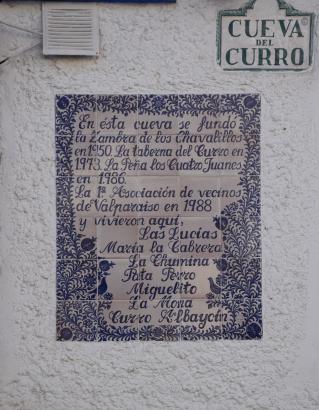 CUEVA
DEL
CURRO
En ésta cueva se fundó
la Zambra de los Chavalillos
en 1950. La taberna del Curro en
1973. La Peña los Cuatro Juanes
en 1986.
La 1ª Asociación de vecinos
de Valparaiso en 1988
y vivieron aquí,
Las Lucías
María la Cabrera
La Chumina
Pata Perro
Miguelito
La Mona
Curro Albaycín